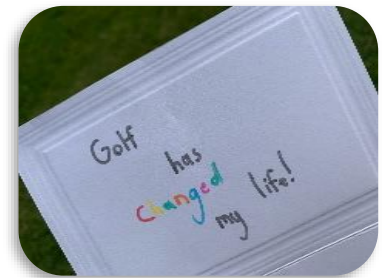 Golf
has
Changed
my life!